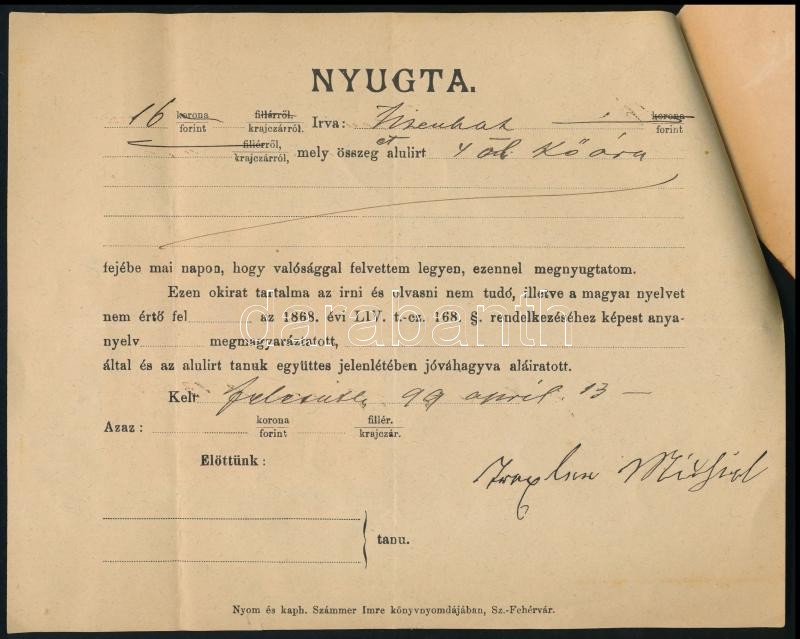 NYUGTA.
16 korona forint fillérről. krajczárról. Irva: Tizenhat korona forint
fillérről, krajczárról, mely összeget alulirt 4 öl kő ára
fejébe mai napon, hogy valósággal felvettem legyen, ezennel megnyugtatom.
Ezen okirat tartalma az irni és olvasni nem tudó, illetve a magyar nyelvet
nem értő fel az 1868. évi LIV. t.-cz. 168. §. rendelkezéséhez képest anya-
nyelv megmagyaráztatott,
által és az alulirt tanuk együttes jelenlétében jóváhagyva aláiratott.
Kelt Felcsúth, 99 april. 13
Azaz: korona forint fillér. krajczár.
Előttünk:
tanu.
Nyom és kaph. Számmer Imre könyvnyomdájában, Sz.-Fehérvár.
darabanth